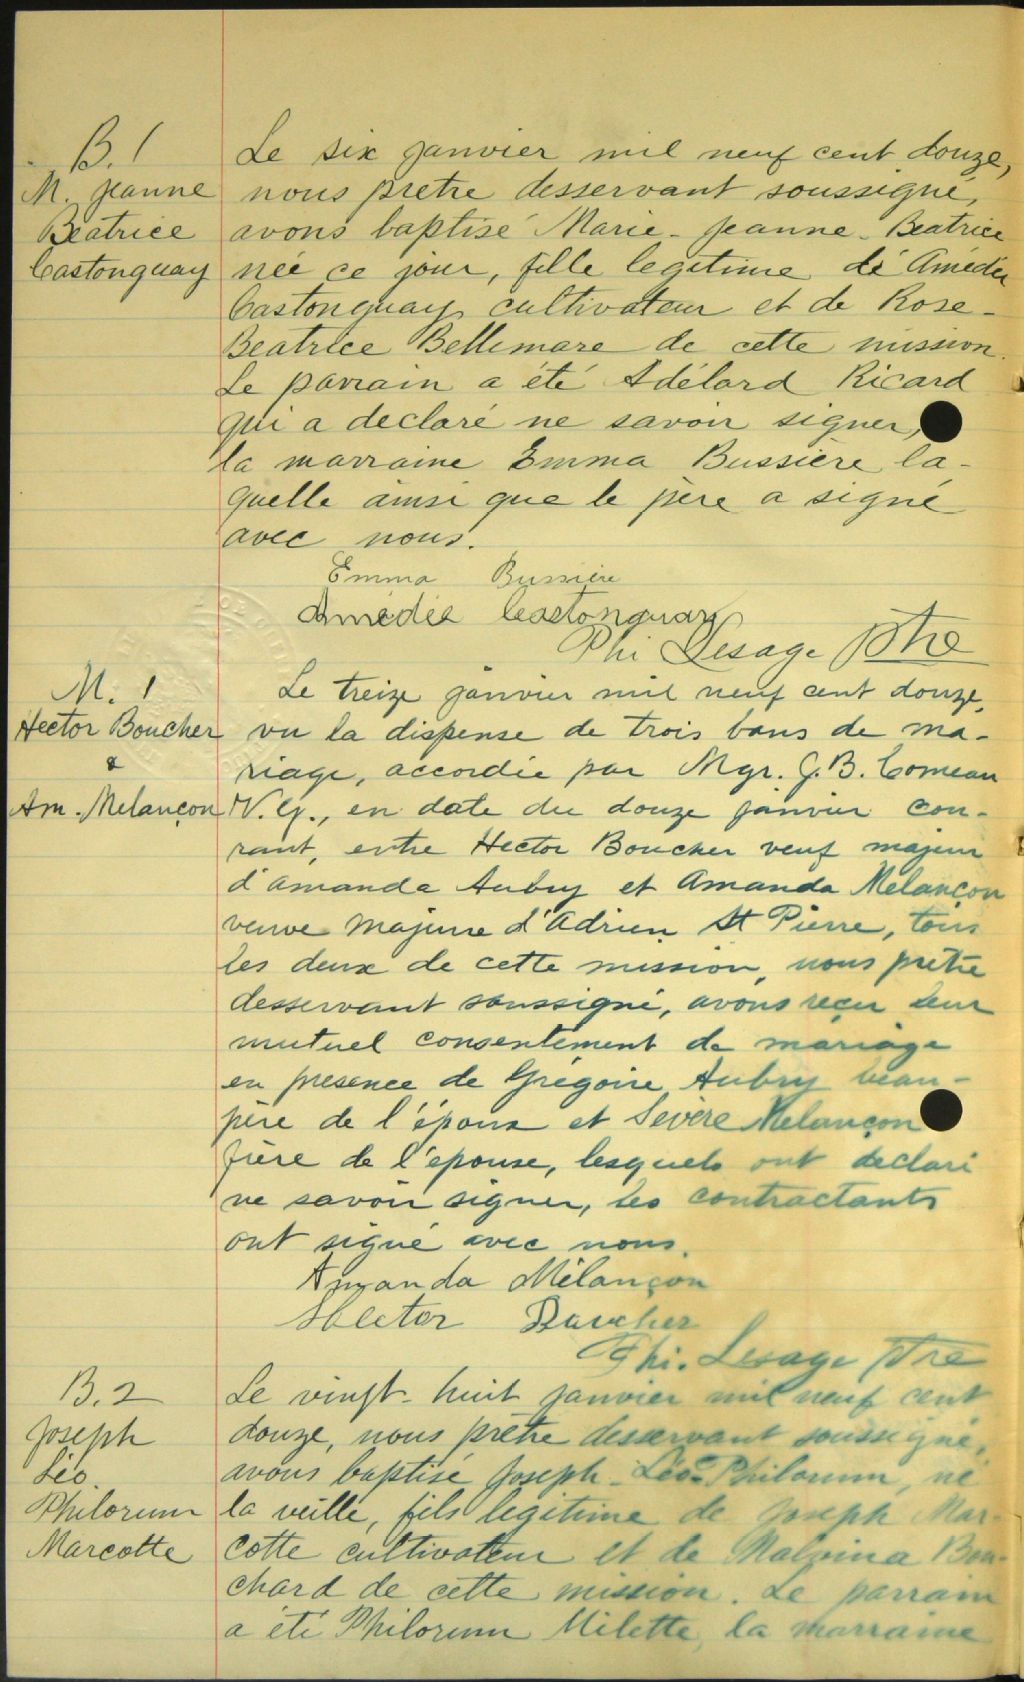 B. 1
M. Jeanne
Béatrice
Castonguay
Le six janvier mil neuf cent douze,
nous prêtre desservant soussigné,
avons baptisé Marie-Jeanne-Beatrice
née ce jour, fille legitime de Amédée
Castonguay cultivateur et de Rose-
Beatrice Bellemare de cette mission.
Le parrain a été Adélard Ricard
qui a declaré ne savoir signer,
la marraine Emma Bussière la-
quelle ainsi que le père a signé
avec nous.
Emma Bussière
Amédée Castonguay
Phi Lesage ptre
M. 1
Hector Boucher
&
Am. Melançon
Le treize janvier mil neuf cent douze,
vu la dispense de trois bans de ma-
riage, accordée par Mgr. J.B. Comeau
V.G., en date du douze janvier cou-
rant, entre Hector Boucher veuf majeur
d'Amanda Aubry et Amanda Melançon
veuve majeure d'Adrien St Pierre, tous
les deux de cette mission, nous prêtre
desservant soussigné, avons reçu leur
mutuel consentement de mariage
en presence de Grégoire Aubry beau-
père de l'époux et Sévère Melançon
frère de l'epouse, lesquels ont declaré
ne savoir signer, les contractants
ont signé avec nous.
Amanda Mélançon
Hector Boucher
Phi. Lesage ptre
B. 2
Joseph
Léo
Philorum
Marcotte
Le vingt-huit janvier mil neuf cent
douze, nous prêtre desservant soussigné,
avons baptisé Joseph-Léo-Philorum, né
la veille, fils legitime de Joseph Mar-
cotte cultivateur et de Malvina Bou-
chard de cette mission. Le parrain
a été Philorum Milette, la marraine